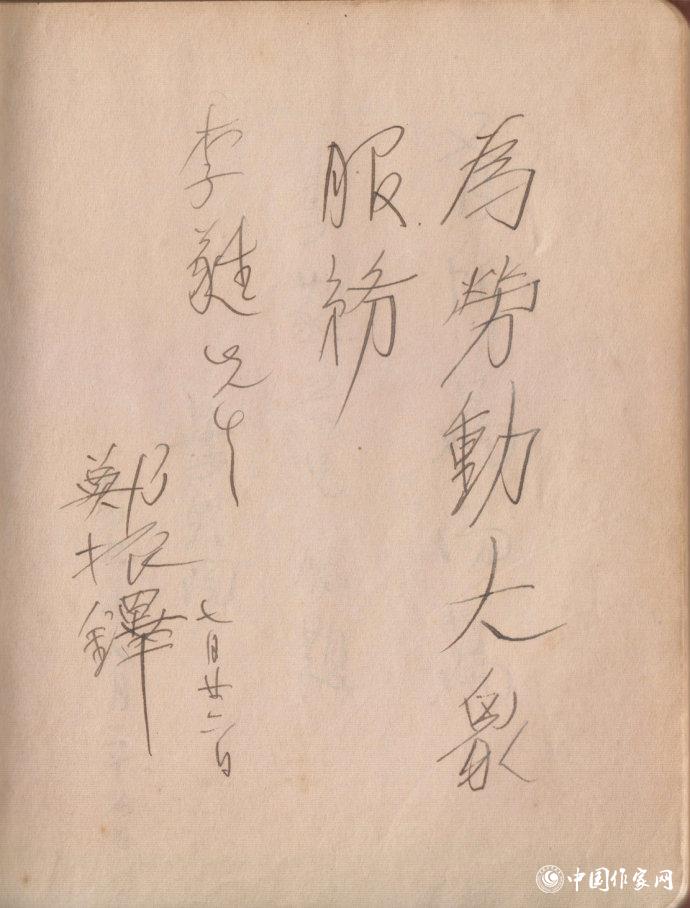 為勞動大眾
服務
李蕤先生
鄭振鐸
七月廿二日
中国作家网